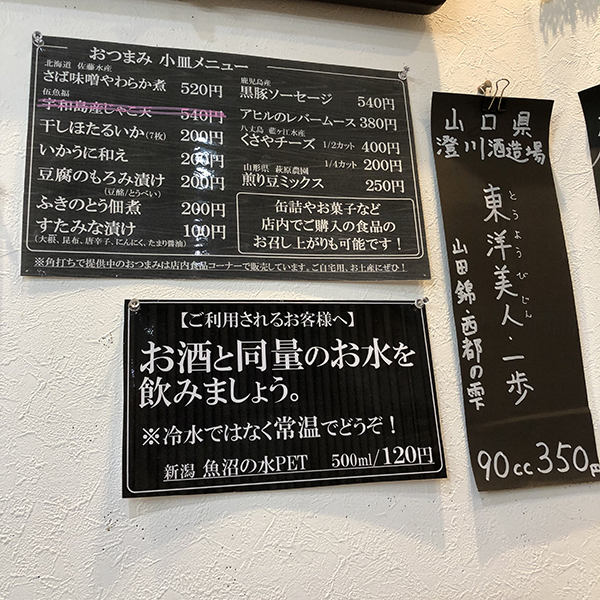 おつまみ 小皿メニュー
北海道 佐藤水産
さば味噌やわらか煮 520円
伍魚福
宇和島産じゃこ天 540円
干しほたるいか(7枚) 200円
いかうに和え 200円
豆腐のもろみ漬け 200円
(豆酩/とうべい)
ふきのとう佃煮 200円
すたみな漬け 100円
(大根、昆布、唐辛子、にんにく、たまり醤油)
鹿児島産
黒豚ソーセージ 540円
アヒルのレバームース 380円
八丈島 藍ヶ江水産
くさやチーズ 1/2カット 400円
1/4カット 200円
山形県 萩原農園
煎り豆ミックス 250円
缶詰やお菓子など
店内でご購入の食品の
お召し上がりも可能です!
※角打ちで提供中のおつまみは店内食品コーナーで販売しています。ご自宅用、お土産にぜひ!
【ご利用されるお客様へ】
お酒と同量のお水を
飲みましょう。
※冷水ではなく常温でどうぞ!
新潟 魚沼の水PET 500ml/120円
山口県
澄川酒造場
東洋美人・一歩
とうようびじん
山田錦・西都の雫
90cc 350円